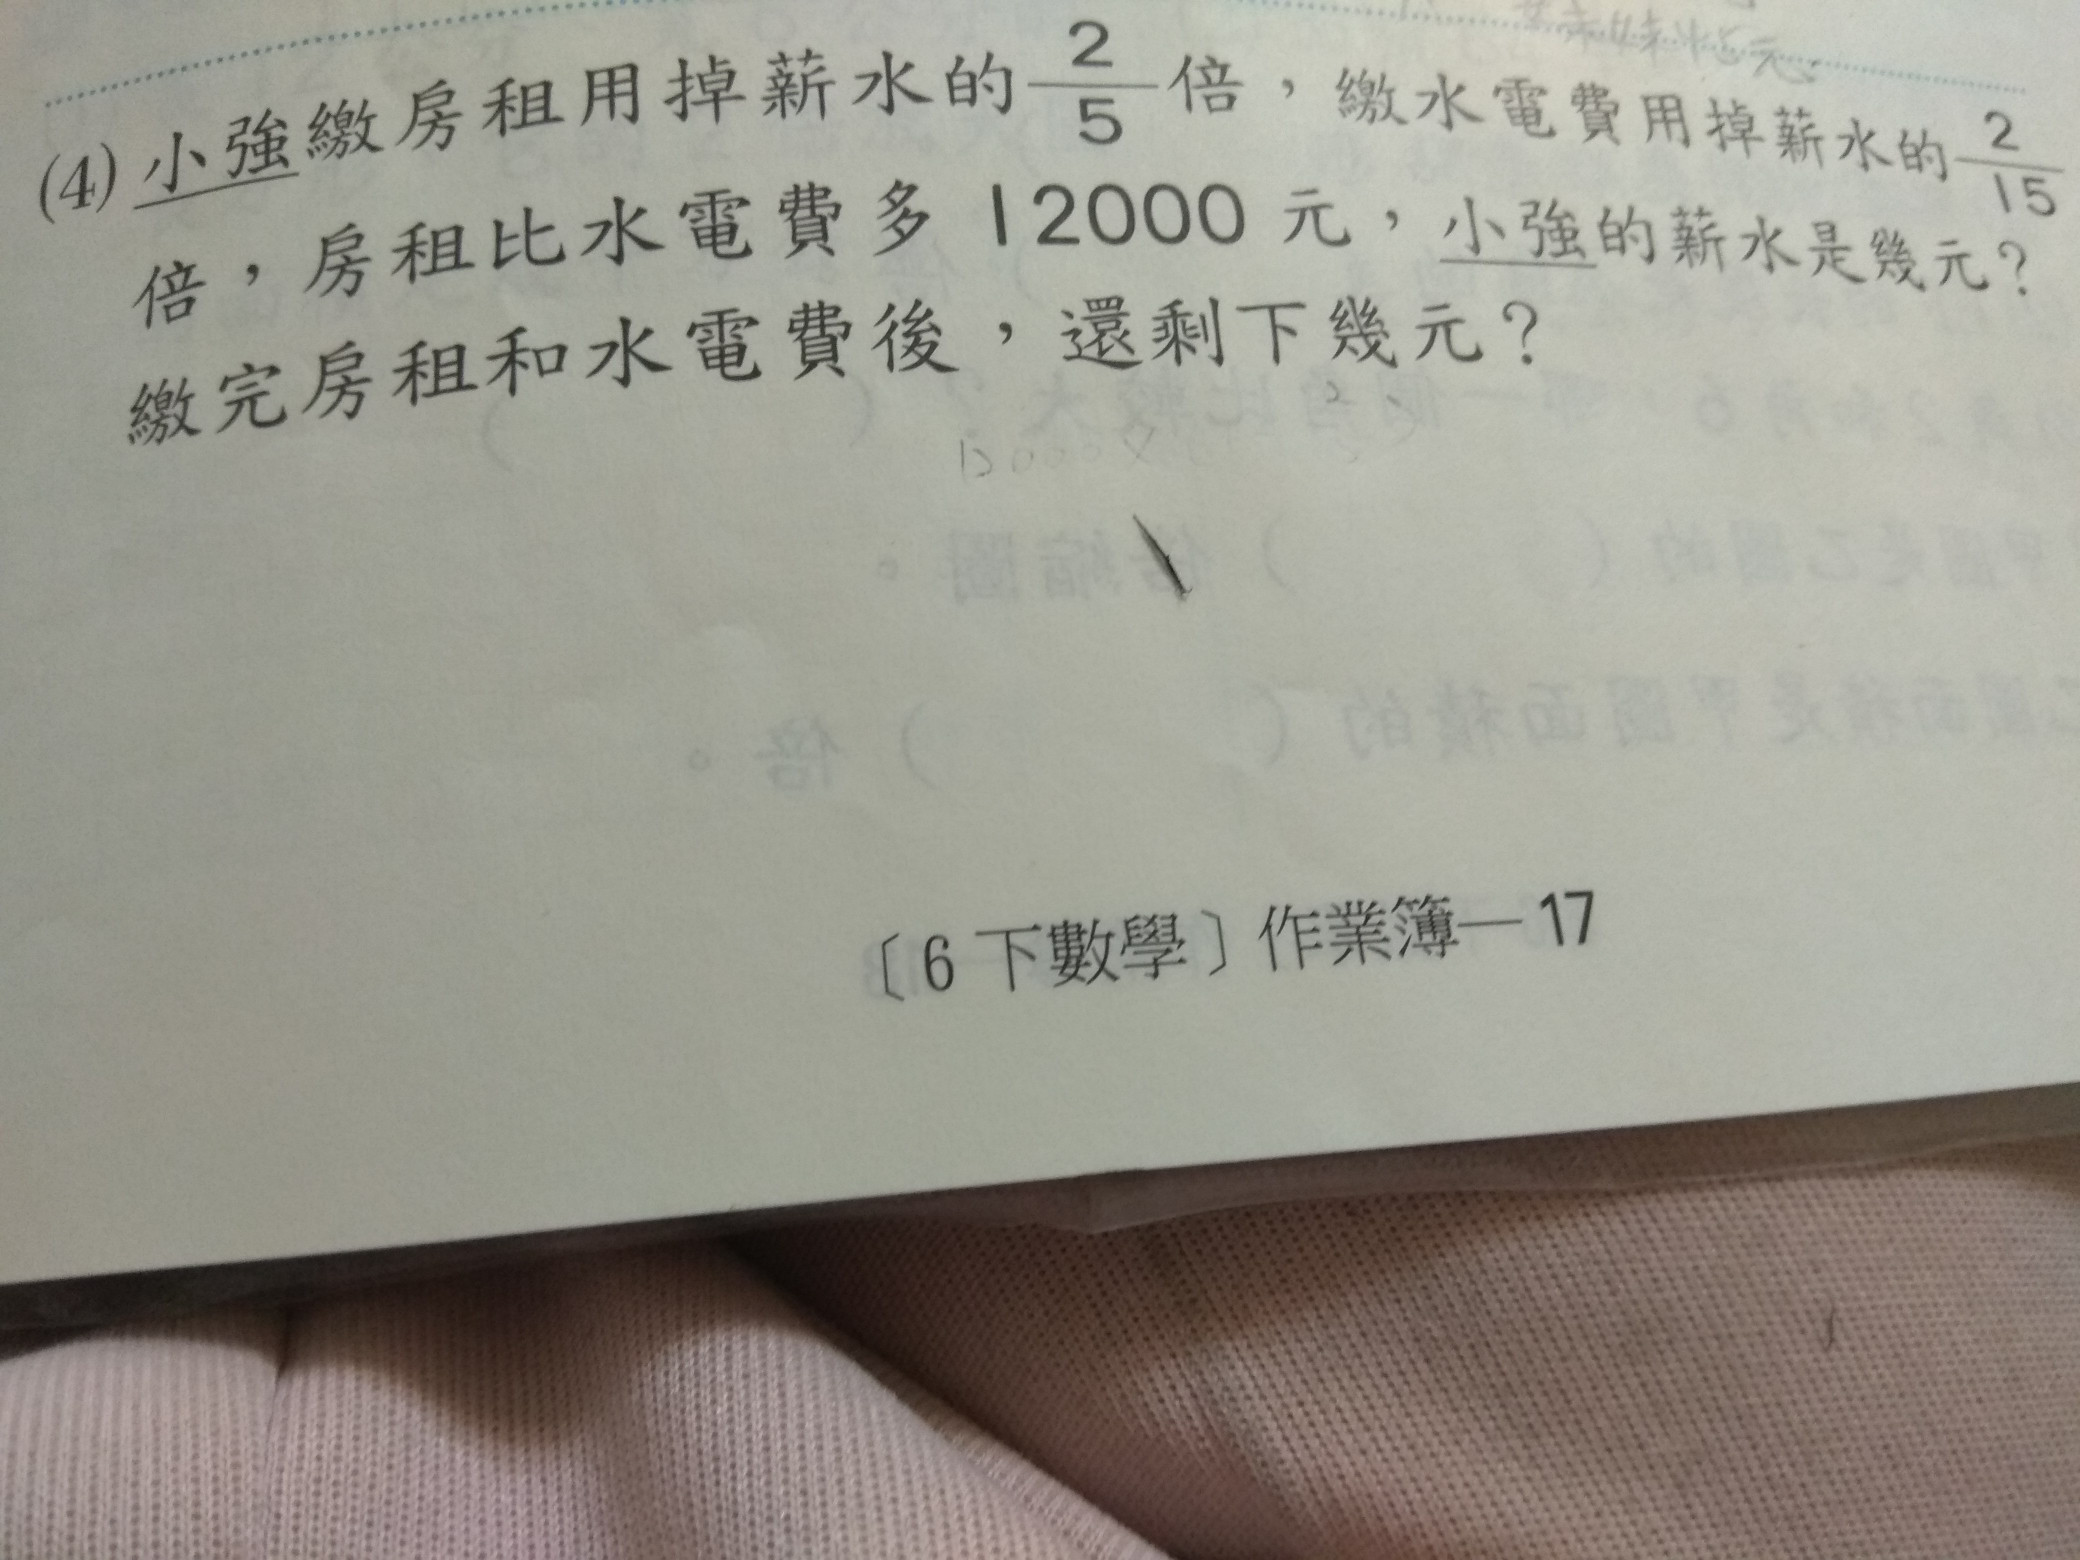 (4) 小強繳房租用掉薪水的2/5倍，繳水電費用掉薪水的2/15
倍，房租比水電費多 12000 元，小強的薪水是幾元？
繳完房租和水電費後，還剩下幾元？
〔6下數學〕作業簿—17